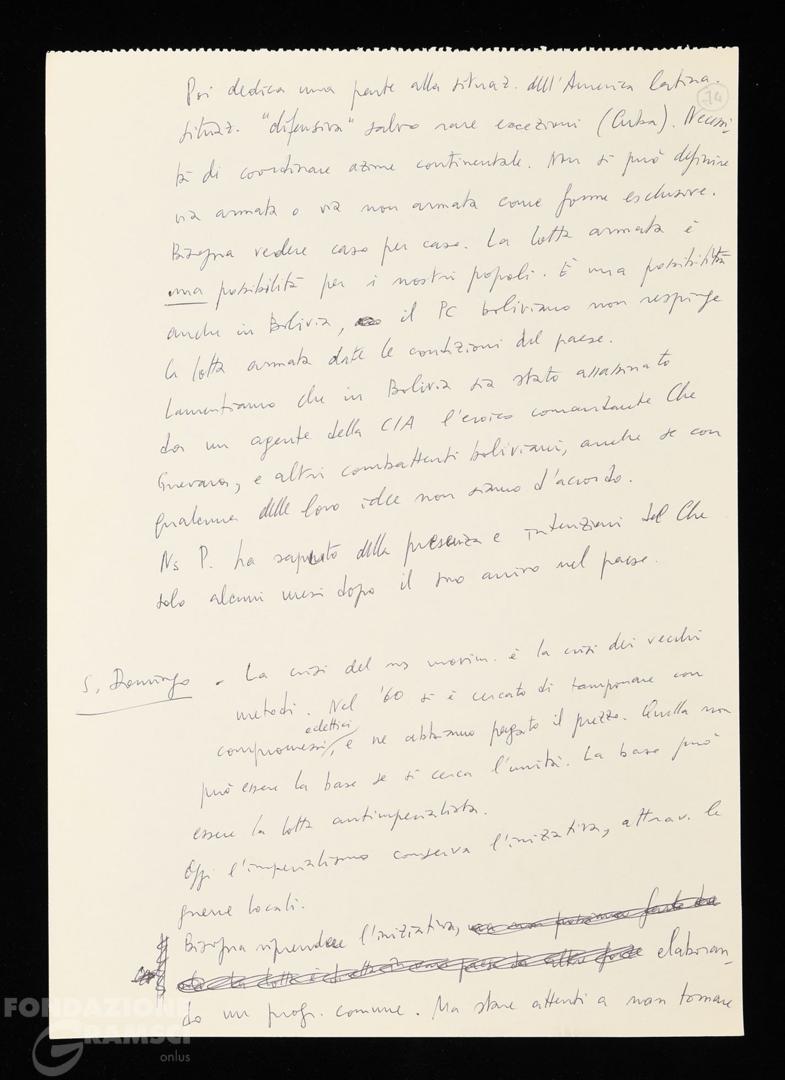 74
Poi dedica una parte alla situaz. dell'America latina.
situaz. "difensiva" salvo rare eccezioni (Cuba). Necessi-
tà di coordinare azione continentale. Non si può definire
via armata o via non armata come forme esclusive.
Bisogna vedere caso per caso. La lotta armata è
una possibilità per i nostri popoli. È una possibilità
anche in Bolivia, il PC boliviano non respinge
la lotta armata date le condizioni del paese.
Lamentiamo che in Bolivia sia stato assassinato
da un agente della CIA l'eroico comandante Che
Guevara, e altri combattenti boliviani, anche se con
qualcuna delle loro idee non siamo d'accordo.
Ns P. ha saputo della presenza e intenzioni del Che
solo alcuni mesi dopo il suo arrivo nel paese.
S. Domingo - La crisi del ns movim. è la crisi dei vecchi
metodi. Nel '60 si è cercato di tamponare con
compromessi eclettici, e ne abbiamo pagato il prezzo. Quella non
può essere la base se si cerca l'unità. La base può
essere la lotta antimperialista.
Oggi l'imperialismo conserva l'iniziativa, attrav. le
guerre locali.
Bisogna riprendere l'iniziativa,
elaboran-
do un progr. comune. Ma stare attenti a non tornare
FONDAZIONE
GRAMSCI
onlus